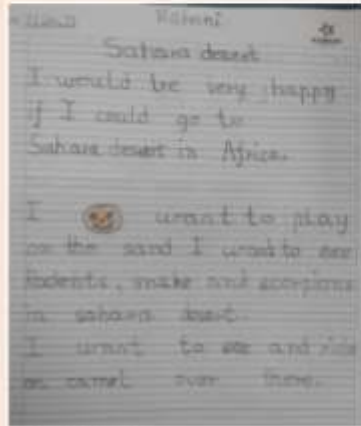 Sahara desert
I would be very happy
if I could go to
Sahara desert in Africa.
I want to play
on the sand I want to see
Rodents, snake and scorpions
in sahara desert.
I want to see and ride
on camel over there.